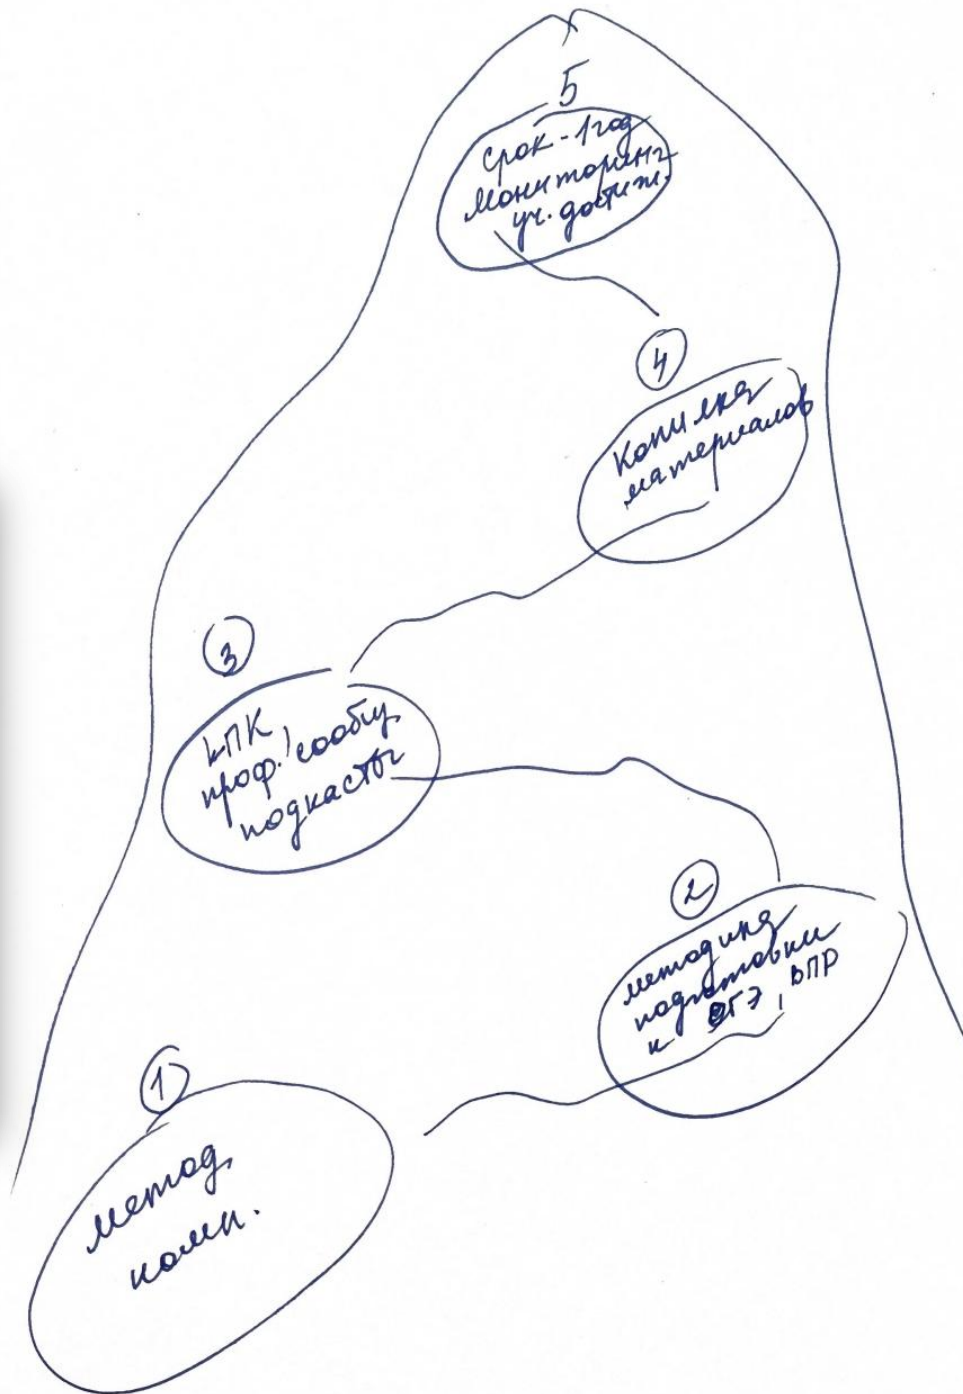 5
срок - 1 год
мониторинг
уч. достиж.
4
копилка
материалов
3
КПК,
проф. сообщ,
подкасты
2
методика
подготовки
к ОГЭ, ВПР
1
метод.
комп.